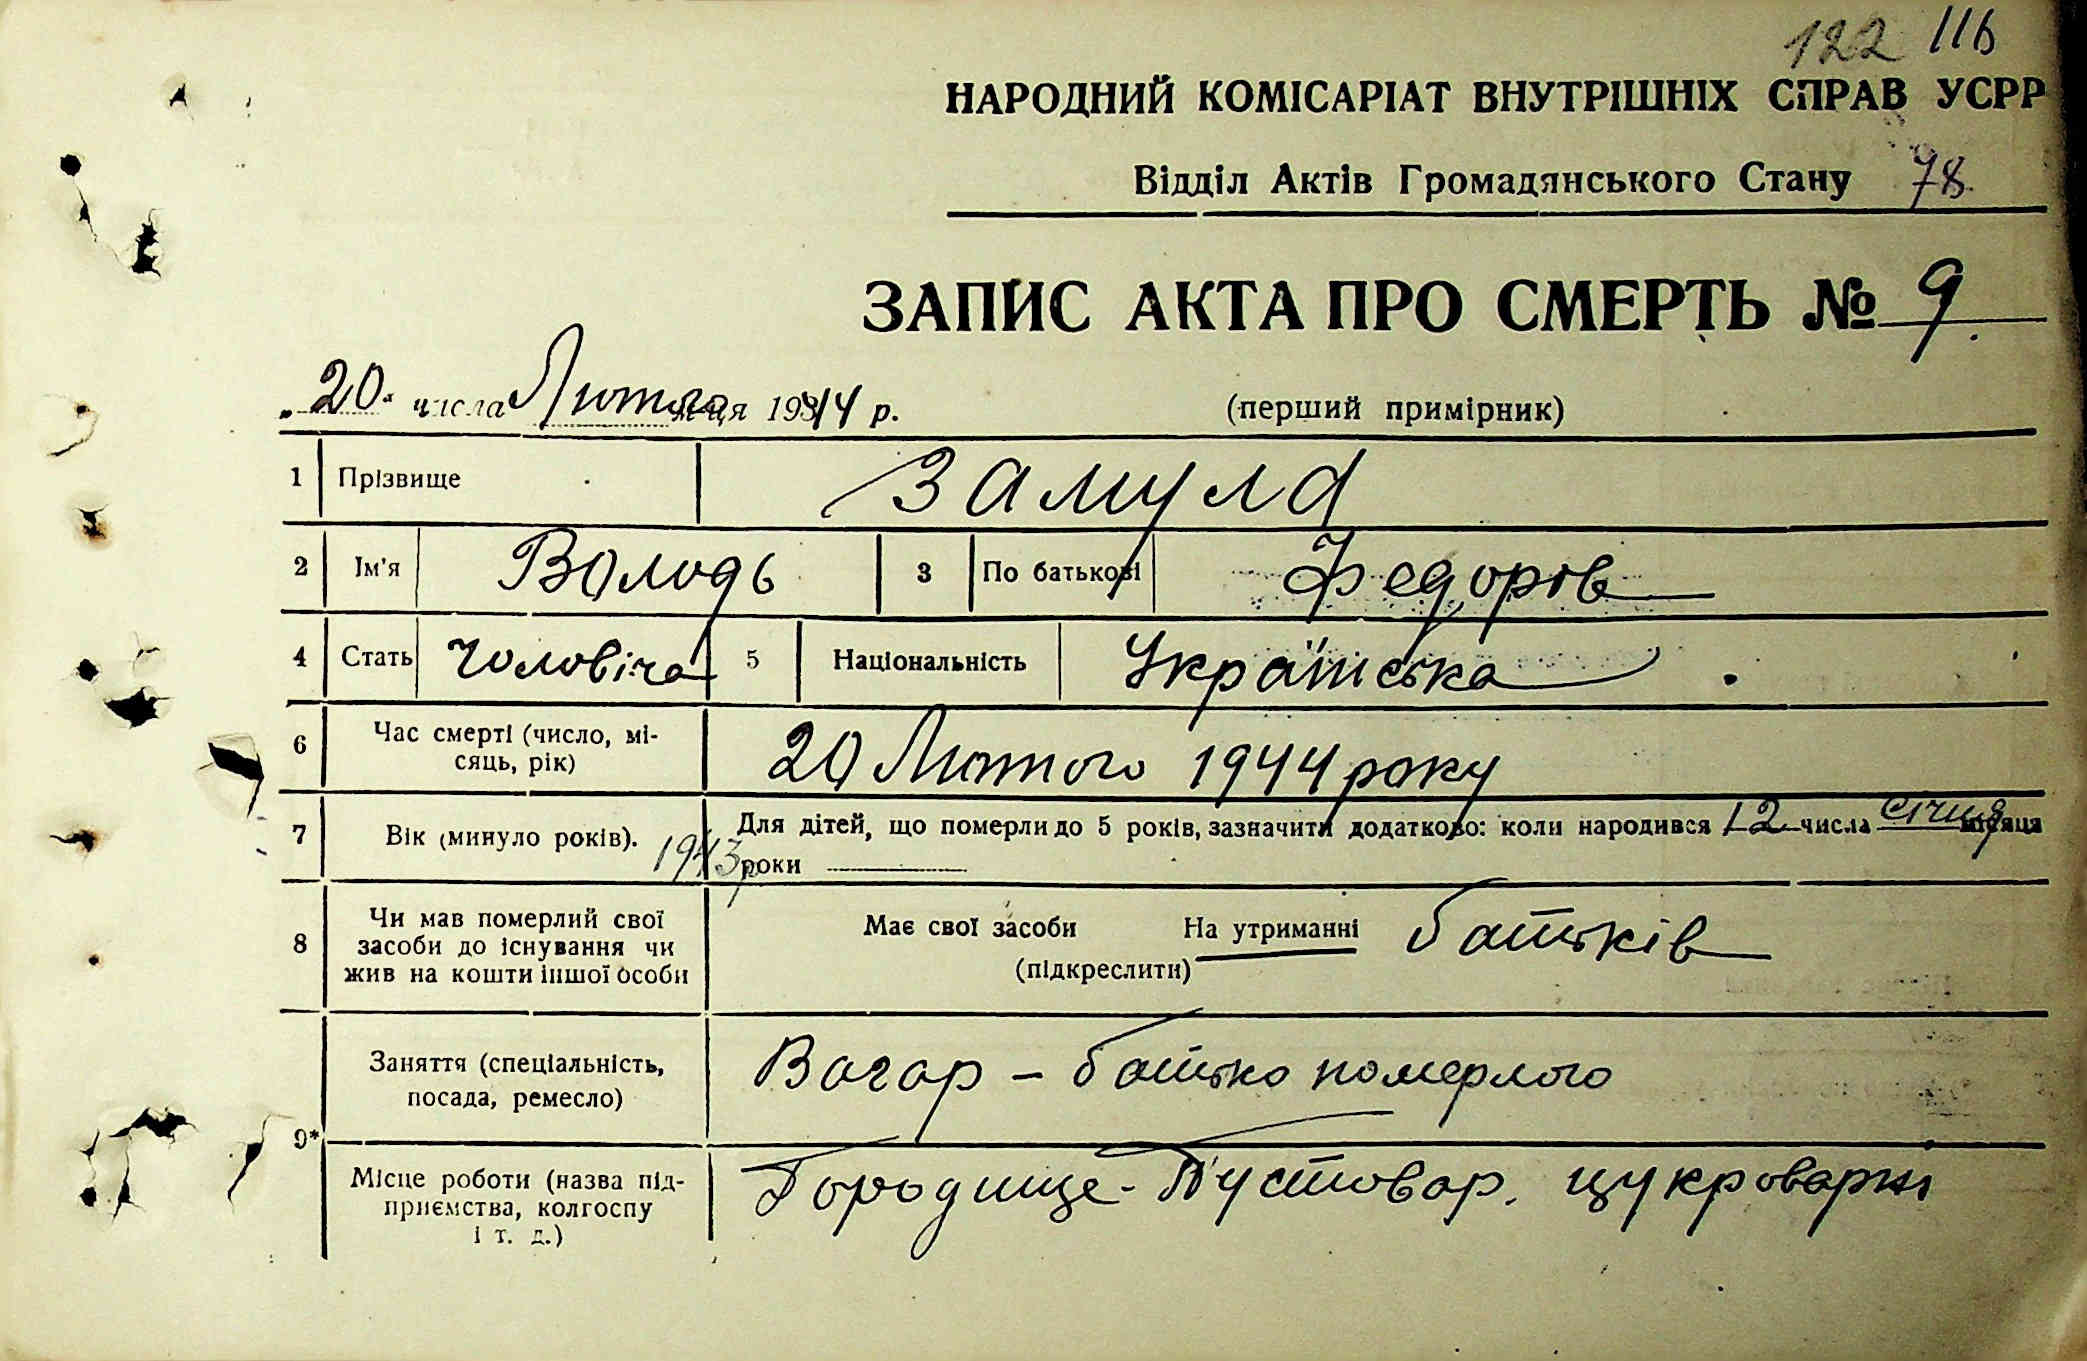 122 116
НАРОДНИЙ КОМІСАРІАТ ВНУТРІШНІХ СПРАВ УСРР
Відділ Актів Громадянського Стану 78
ЗАПИС АКТА ПРО СМЕРТЬ № 9
„20" числа Лютого м-ця 1944 р. (перший примірник)
1 Прізвище Замула
2 Ім'я Володь 3 По батькові Федорів
4 Стать чоловіча 5 Національність Українська
6 Час смерті (число, мі-
сяць, рік) 20 Лютого 1944 року
7 Вік (минуло років). Для дітей, що померли до 5 років, зазначити додатково: коли народився 12 числа січня місяця
1943 р роки
8 Чи мав померлий свої
засоби до існування чи
жив на кошти іншої особи
Має свої засоби На утриманні батьків
(підкреслити)
9* Заняття (спеціальність,
посада, ремесло)
Вагар – батько померлого
Місце роботи (назва під-
приємства, колгоспу
і т. д.)
Городище-Пустовар. цукроварні